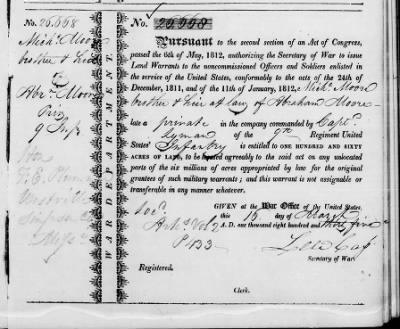 No. 26,668
Mich! Moore
brother & heir
Abr. Moore
9 Inf
WAR DEPARTMENT.
No. 26,668
Pursuant to the second section of an Act of Congress,
passed the 6th of May, 1812, authorizing the Secretary of War to issue
Land Warrants to the uncommissioned Officers and Soldiers enlisted in
the service of the United States, conformably to the acts of the 24th of
December, 1811, and of the 11th of January, 1812, Mich! Moore
brother & heir at law of Abraham Moore
late a private in the company commanded by Capt.
Lyman of the 9th Regiment United
States' Infantry is entitled to ONE HUNDRED AND SIXTY
ACRES OF LAND, to be located agreeably to the said act on any unlocated
parts of the six millions of acres appropriated by law for the original
grantees of such military warrants; and this warrant is not assignable or
transferable in any manner whatever.
GIVEN at the War Office of the United States,
this 16 day of March
A. D. one thousand eight hundred and thirty five
Vol 2
P 133
Lew Cass
Secretary of War.
Registered.
Clerk.